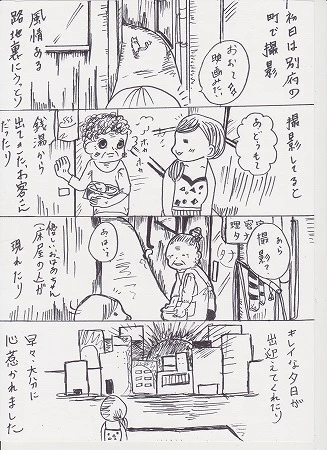 初日は別府の
町で撮影
映画みた
風情ある
路地裏にうっとり
撮影してると
あ、どうもー
ホカホカ
銭湯から
出てきたお客さん
だったり
あら
撮影?
優しいおばあちゃん
(床屋の人)が
現れたり
キレイな夕日が
出迎えてくれたり
早々、大分に
心惹かれました